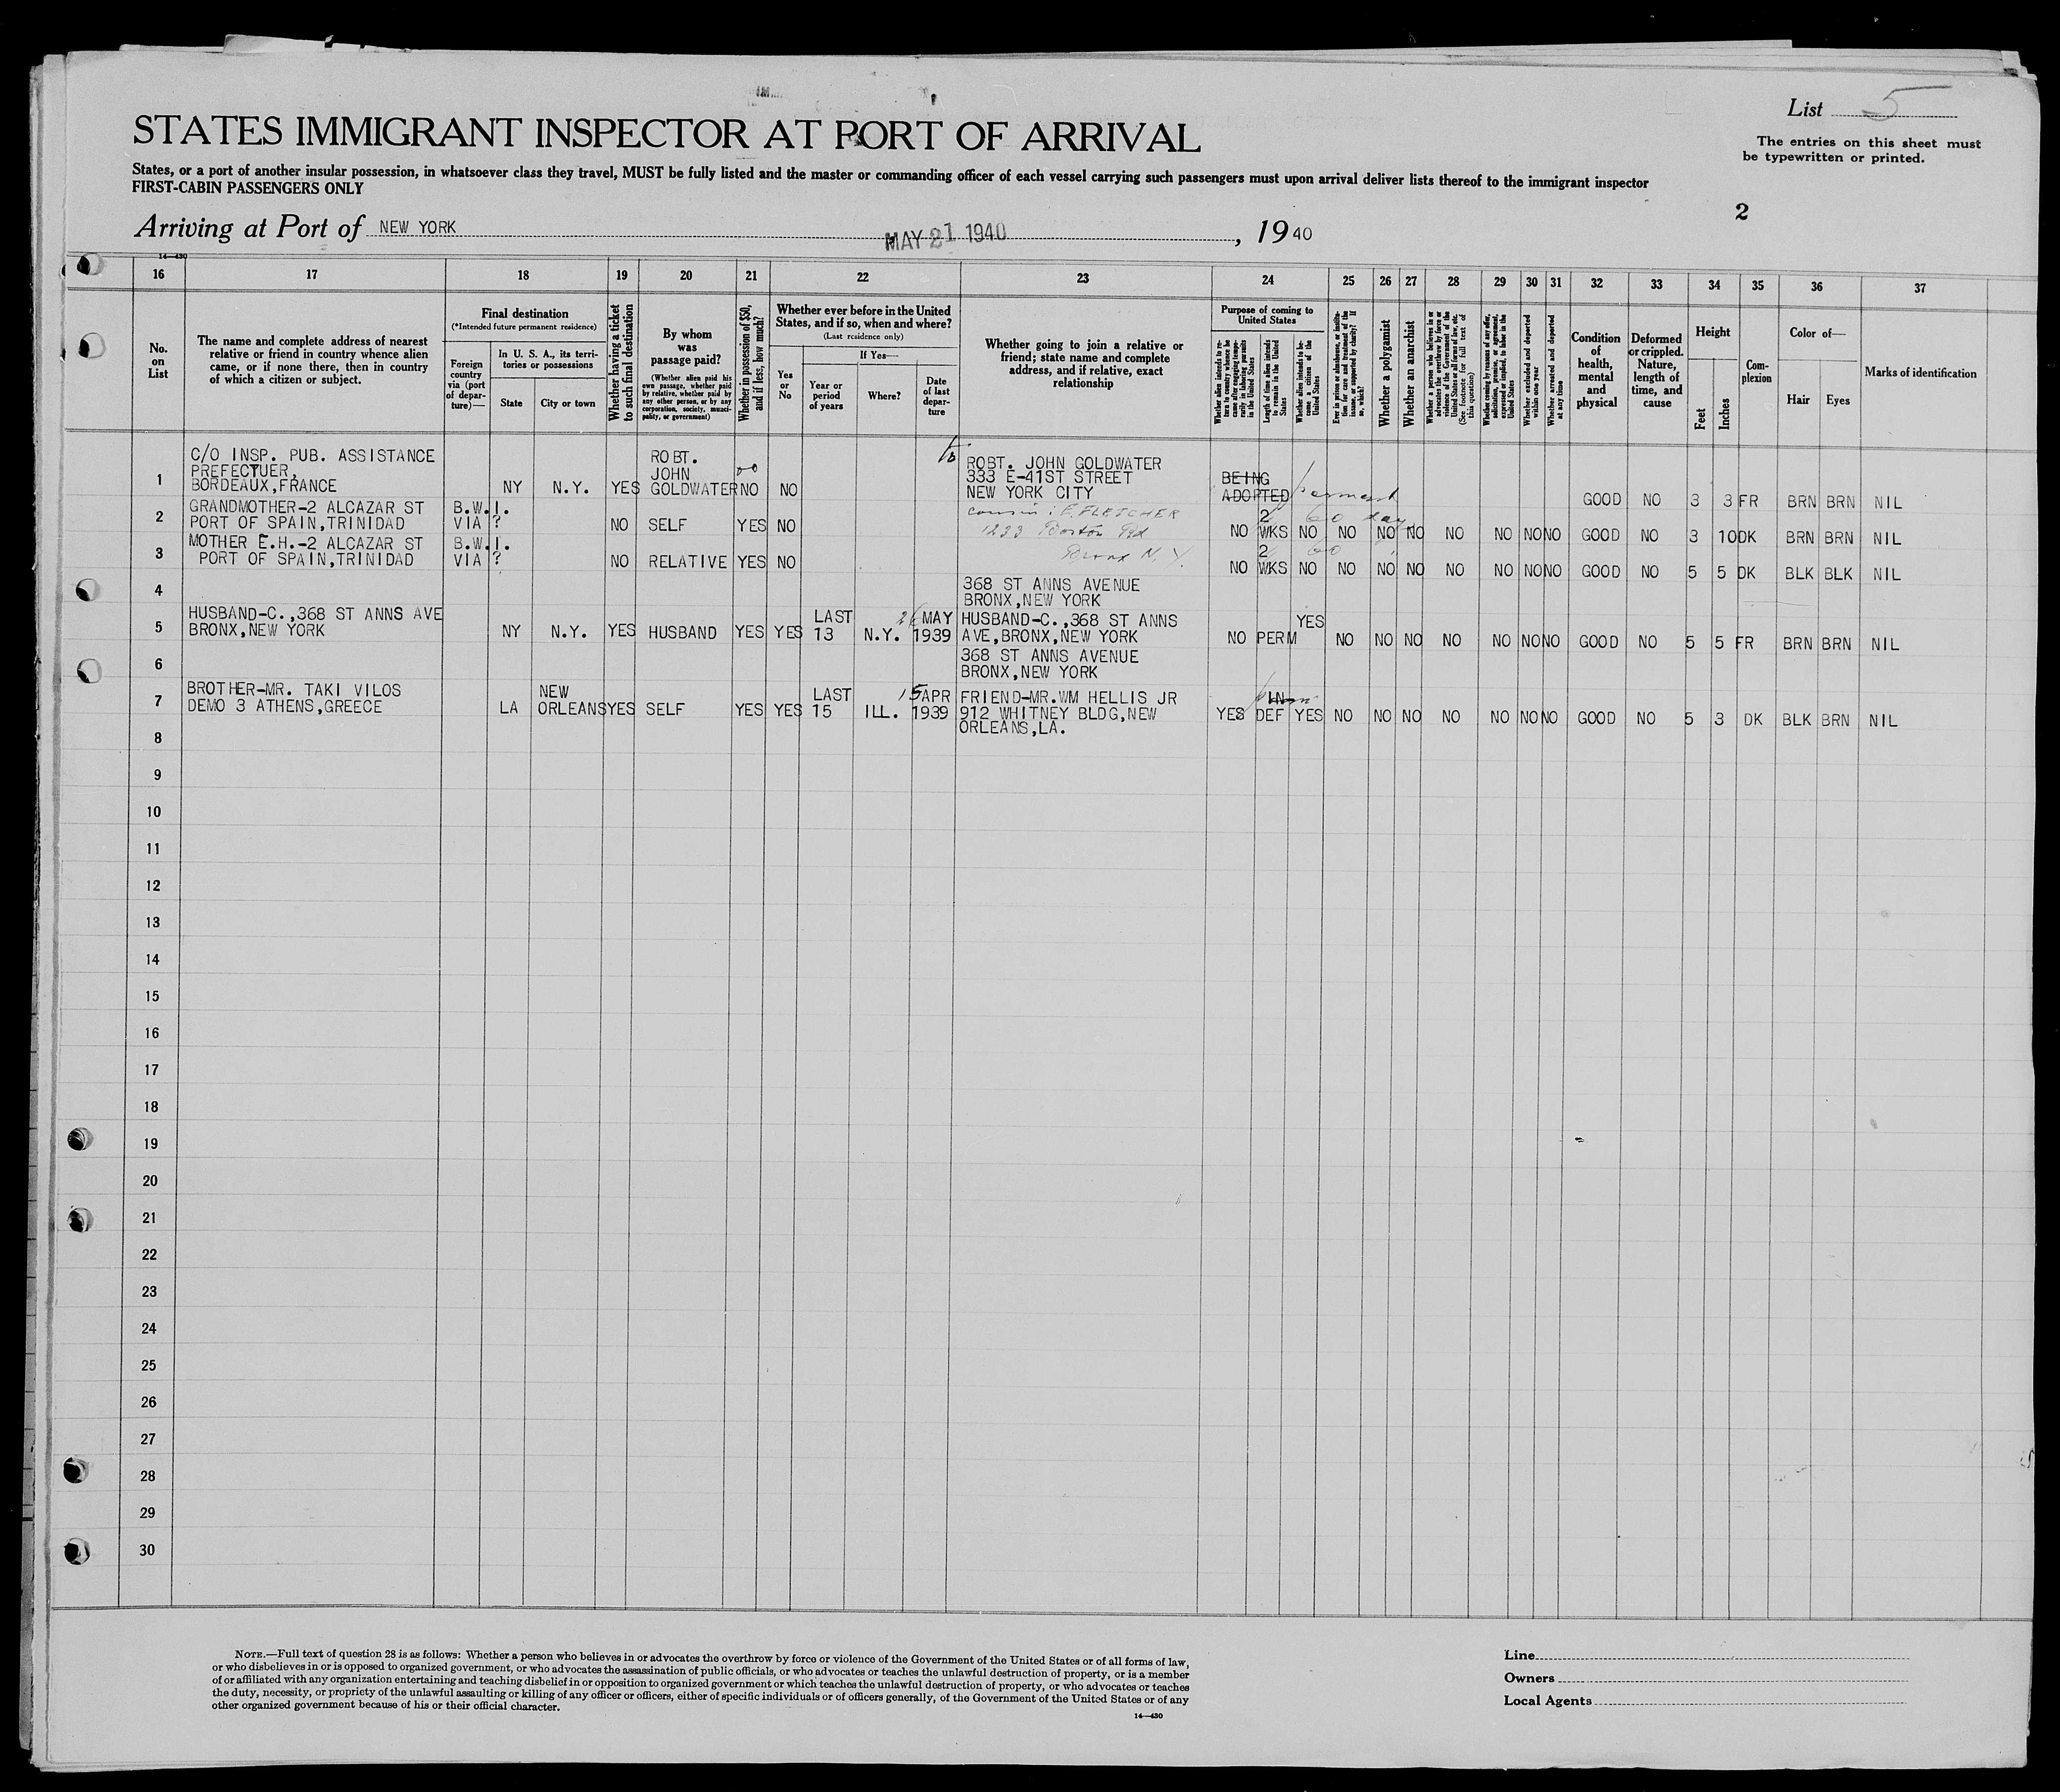 List 5
STATES IMMIGRANT INSPECTOR AT PORT OF ARRIVAL
The entries on this sheet must
be typewritten or printed.
States, or a port of another insular possession, in whatsoever class they travel, MUST be fully listed and the master or commanding officer of each vessel carrying such passengers must upon arrival deliver lists thereof to the immigrant inspector
FIRST-CABIN PASSENGERS ONLY
2
Arriving at Port of NEW YORK MAY 21 1940, 19 40
14—430
16 17 18 19 20 21 22 23 24 25 26 27 28 29 30 31 32 33 34 35 36 37
No.
on
List
The name and complete address of nearest
relative or friend in country whence alien
came, or if none there, then in country
of which a citizen or subject.
Final destination
(*Intended future permanent residence)
Foreign
country
via (port
of depar-
ture)—
In U. S. A., its terri-
tories or possessions
State
City or town
Whether having a ticket
to such final destination
By whom
was
passage paid?
(Whether alien paid his
own passage, whether paid
by relative, whether paid by
any other person, or by any
corporation, society, munici-
pality, or government)
Whether in possession of $50,
and if less, how much?
Whether ever before in the United
States, and if so, when and where?
(Last residence only)
Yes
or
No
If Yes—
Year or
period
of years
Where?
Date
of last
depar-
ture
Whether going to join a relative or
friend; state name and complete
address, and if relative, exact
relationship
Purpose of coming to
United States
Whether alien intends to re-
turn to country whence he
came after engaging tempo-
rarily in laboring pursuits
in the United States
Length of time alien intends
to remain in the United
States
Whether alien intends to be-
come a citizen of the
United States
Ever in prison or almshouse, or institu-
tion for care and treatment of the
insane, or supported by charity? If
so, which?
Whether a polygamist
Whether an anarchist
Whether a person who believes in or
advocates the overthrow by force or
violence of the Government of the
United States or all forms of law, etc.
(See footnote for full text of
this question)
Whether coming by reasons of any offer,
solicitation, promise, or agreement,
expressed or implied, to labor in the
United States
Whether excluded and deported
within one year
Whether arrested and deported
at any time
Condition
of
health,
mental
and
physical
Deformed
or crippled.
Nature,
length of
time, and
cause
Height
Feet
Inches
Com-
plexion
Color of—
Hair
Eyes
Marks of identification
1 C/O INSP. PUB. ASSISTANCE
PREFECTUER,
BORDEAUX,FRANCE
NY N.Y. YES
ROBT.
JOHN
GOLDWATER
NO NO
ROBT. JOHN GOLDWATER
333 E-41ST STREET
NEW YORK CITY
BEING
ADOPTED
GOOD NO 3 3 FR BRN BRN NIL
2 GRANDMOTHER-2 ALCAZAR ST
PORT OF SPAIN,TRINIDAD
B.W.I.
VIA ?
NO SELF YES NO
cousin : E. FLETCHER
1223 Boston Rd
Bronx N.Y.
60 days
2
NO WKS NO NO NO NO NO NO NO NO GOOD NO 3 10 DK BRN BRN NIL
3 MOTHER E.H.-2 ALCAZAR ST
PORT OF SPAIN,TRINIDAD
B.W.I.
VIA ?
NO RELATIVE YES NO
2 60
NO WKS NO NO NO NO NO NO NO NO GOOD NO 5 5 DK BLK BLK NIL
4 368 ST ANNS AVENUE
BRONX,NEW YORK
5 HUSBAND-C.,368 ST ANNS AVE
BRONX,NEW YORK
NY N.Y. YES HUSBAND YES YES
LAST
13 N.Y.
26 MAY
1939
HUSBAND-C.,368 ST ANNS
AVE,BRONX,NEW YORK
NO PERM YES NO NO NO NO NO NO NO GOOD NO 5 5 FR BRN BRN NIL
6 368 ST ANNS AVENUE
BRONX,NEW YORK
7 BROTHER-MR. TAKI VILOS
DEMO 3 ATHENS,GREECE
LA
NEW
ORLEANS
YES SELF YES YES
LAST
15 ILL.
15 APR
1939
FRIEND-MR.WM HELLIS JR
912 WHITNEY BLDG,NEW
ORLEANS,LA.
IN
YES DEF YES NO NO NO NO NO NO NO GOOD NO 5 3 DK BLK BRN NIL
8
9
10
11
12
13
14
15
16
17
18
19
20
21
22
23
24
25
26
27
28
29
30
NOTE.—Full text of question 28 is as follows: Whether a person who believes in or advocates the overthrow by force or violence of the Government of the United States or of all forms of law,
or who disbelieves in or is opposed to organized government, or who advocates the assassination of public officials, or who advocates or teaches the unlawful destruction of property, or is a member
of or affiliated with any organization entertaining and teaching disbelief in or opposition to organized government or which teaches the unlawful destruction of property, or who advocates or teaches
the duty, necessity, or propriety of the unlawful assaulting or killing of any officer or officers, either of specific individuals or of officers generally, of the Government of the United States or of any
other organized government because of his or their official character.
14—430
Line
Owners
Local Agents